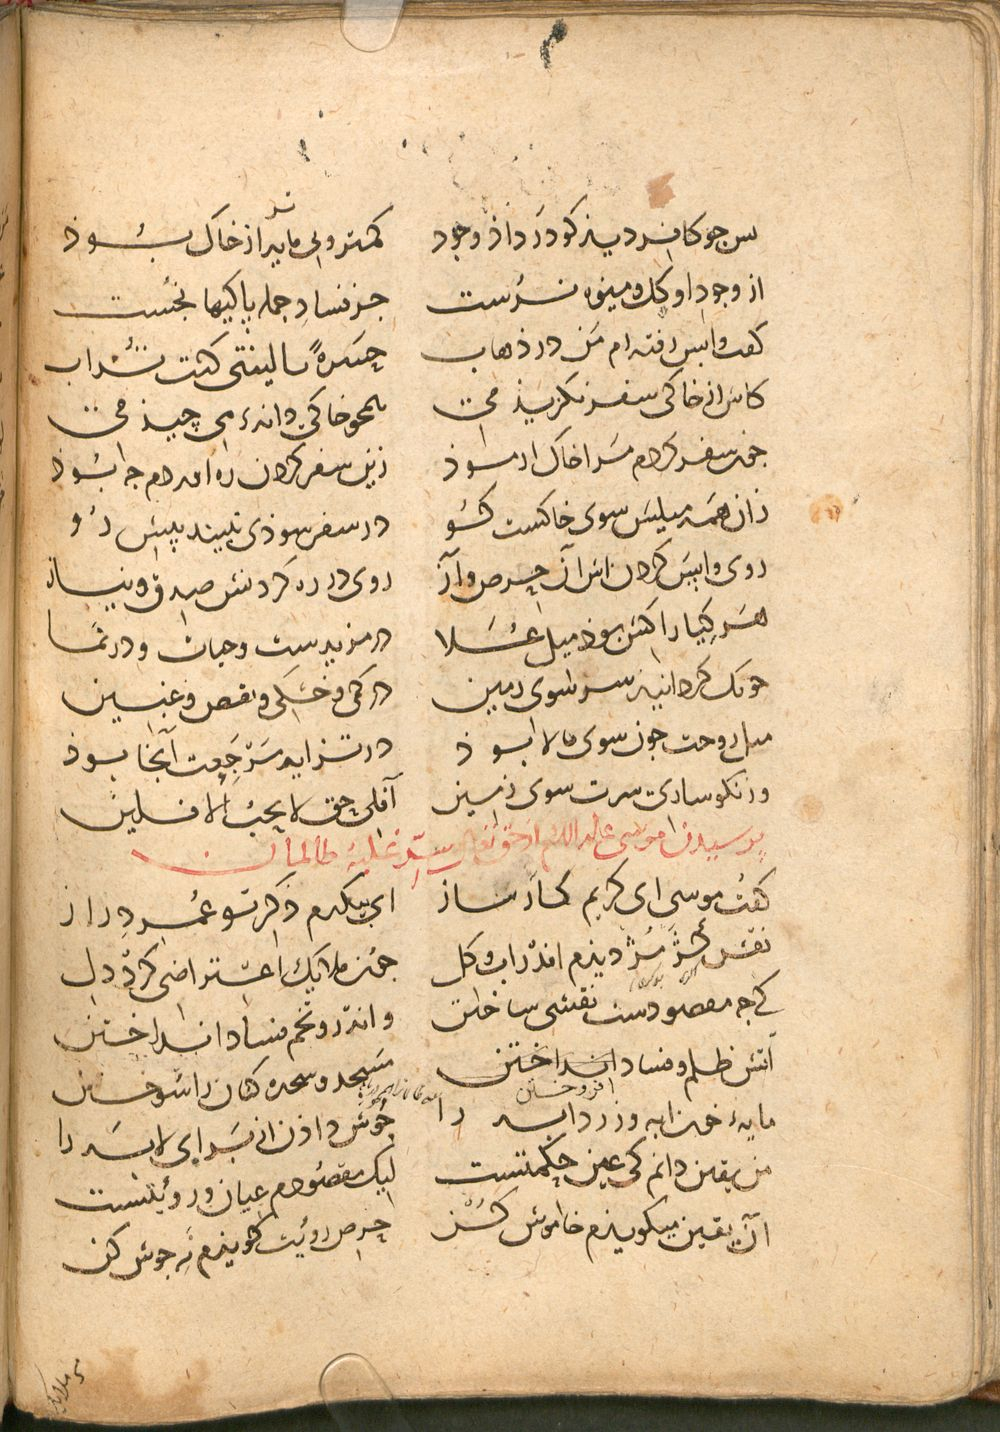 بس جو کافر دیذ کو در داذ وجود    کمتر و بی مایه‌تر از خاک بوذ
از وجود او گل و میوه نرست    جز فساد جمله پاکیها نجست
گفت وابس رفته‌ام من در ذهاب    حسرةً یا لیتنی کنت تراب
کاش از خاکی سفر نگزیذمی    همجو خاکی دانهٔ می جیذمی
جون سفر کردم مرا خاک ازموذ    زین سفر کردن ره آوردم جه بوذ
زان همه میلش سوی خاکست کو    در سفر سوذی نبیند پیش رو
روی وابس کردنش آن حرص و آز    روی در ره کردنش صدق و نیاز
هر کیا را کش بوذ میل علا    در مزیدست و حیات و در نما
جونک کردانیذ سر سوی زمین    در کمی و خشکی و نقص و غبین
میل روحت جون سوی بالا بوذ    در تزاید مرجعت آنجا بوذ
ور نکوساری سرت سوی زمین    آفلی حق لا یحب الآفلین
پرسیدن موسی علیه السلم از حق تعالی سرّ غلبهٔ ظالمان
گفت موسی ای کریم کارساز    ای بیکدم ذکر تو عمر دراز
نقش کژمژ دیذم اندر آب و کل    جون ملایک اعتراضی کرد دل
کی جه مقصودست نقشی ساختن    و اندرو تخم فساد انداختن
آتش ظلم و فساد انداختن    مسجد و سجده کنان را سوختن
افروختن
مایهٔ خونابه و زردابه را    جوش داذن از برای لابه را
من یقین دانم کی عین حکمتست    لیک مقصودم عیان و رؤیتست
آن یقین میکویذم خاموش کن    حرص رؤیت کویذم نه جوش کن